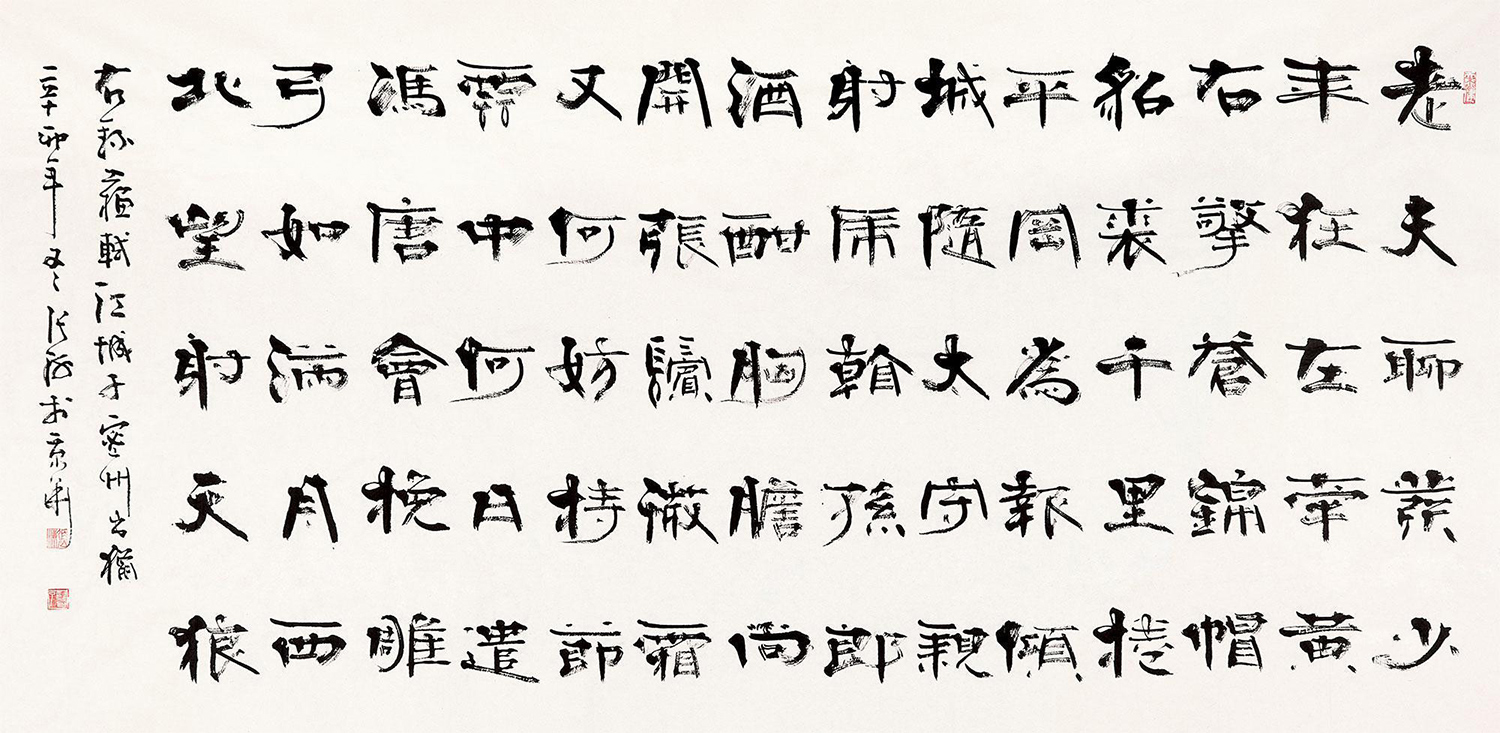 老夫聊發少
年狂左牽黃
右擎蒼錦帽
貂裘千里捲
平岡為報傾
城隨太守親
射虎看孫郎
酒酣胸膽尚
開張鬢微霜
又何妨持節
雲中何日遣
馮唐會挽雕
弓如滿月西
北望射天狼
右錄蘇軾江城子密州出獵
辛卯年冬張繼於京華